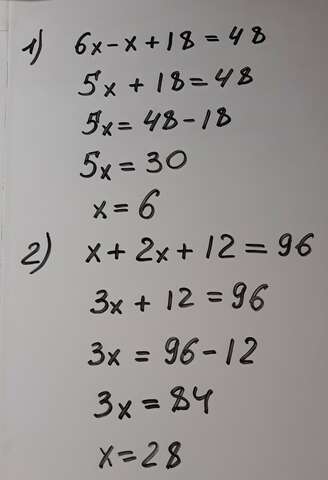 1) 6x-x+18=48
5x+18=48
5x=48-18
5x=30
x=6
2) x+2x+12=96
3x+12=96
3x=96-12
3x=84
x=28